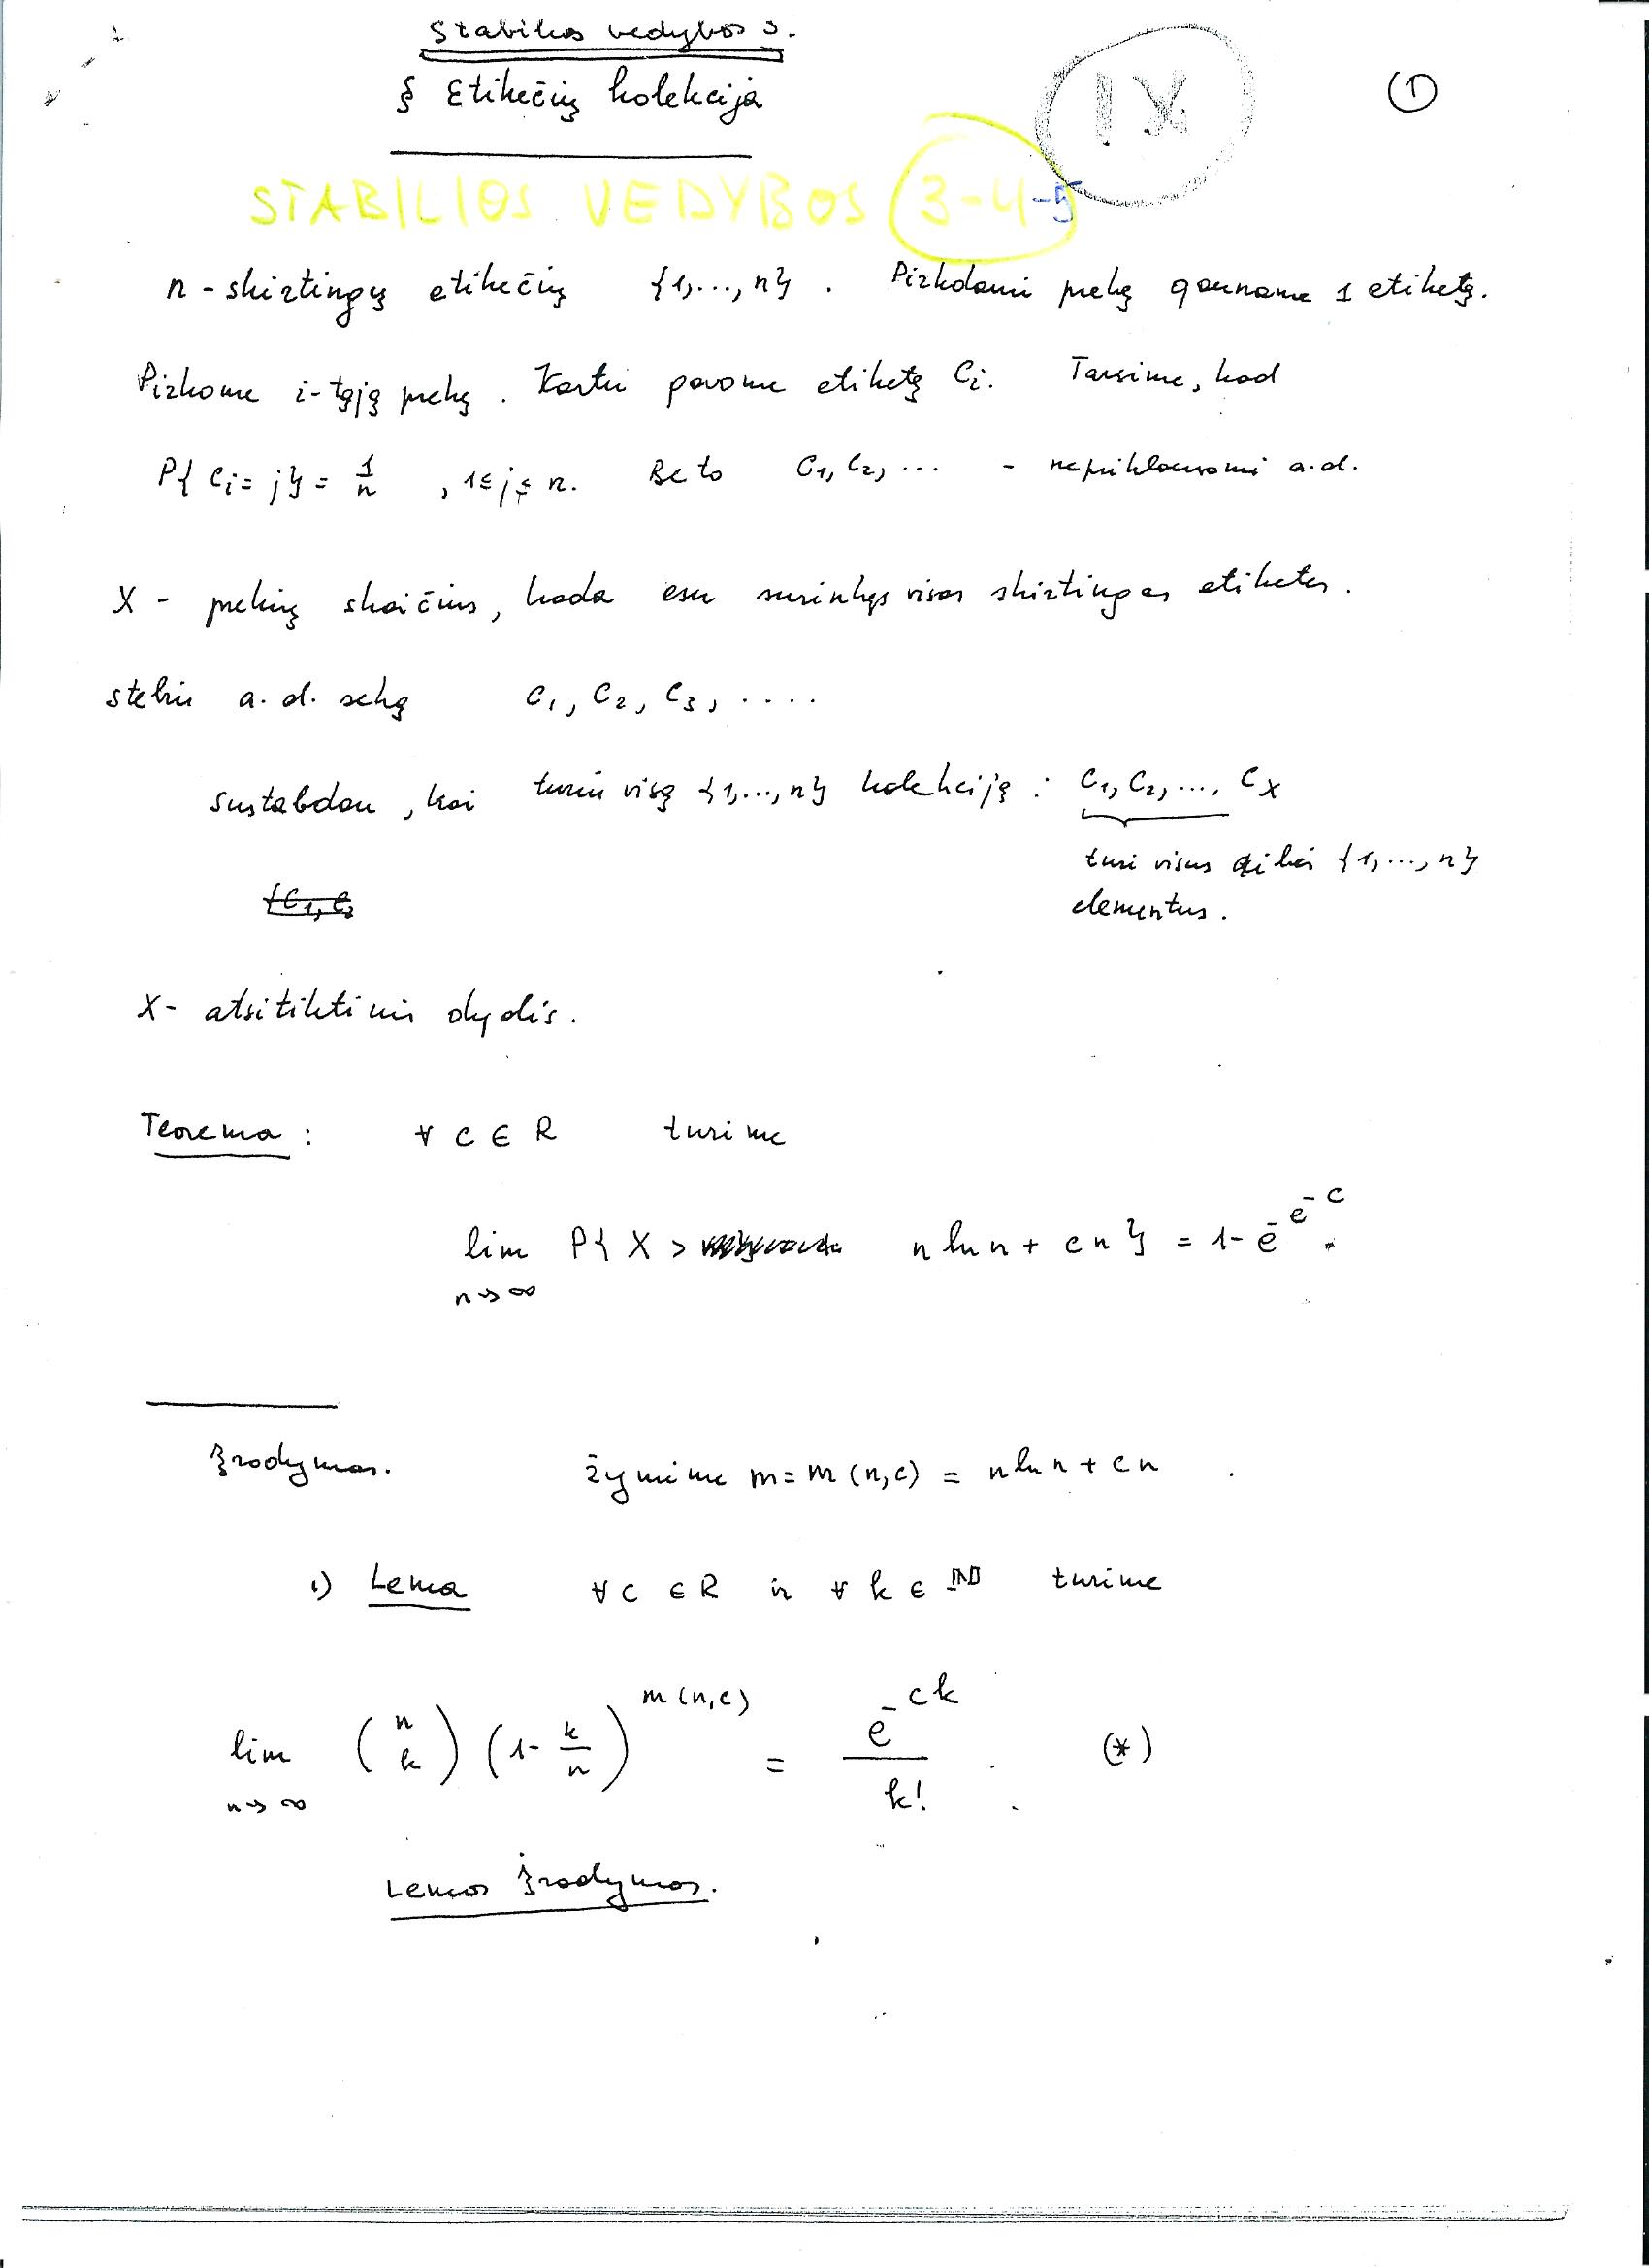 Stabilios vedybos 3.
§ Etikečių kolekcija
IX
①
STABILIOS VEDYBOS (3-4-5)
n - skirtingų etikečių {1,..., n}. Pirkdami prekę gauname 1 etiketę.
Pirkome i-tąją prekę. Kartu gavome etiketę Ci. Tarsime, kad
P{ Ci = j} = 1/n , 1 ≤ j ≤ n. Be to C1, C2, ... - nepriklausomi a.d.
X - prekių skaičius, kada esu surinkęs visas skirtingas etiketes.
stebiu a. d. seką C1, C2, C3, ....
sustabdau, kai turiu visą {1,..., n} kolekciją : C1, C2, ..., CX
turi visus aibės {1, ..., n}
elementus.
{C1, C2
X - atsitiktinis dydis.
Teorema : ∀ c ∈ R turime
lim n→∞ P{ X > n ln n + cn } = 1 - e^{-e^{-c}}.
Įrodymas. Žymime m = m (n,c) = n ln n + cn .
1) Lema ∀ c ∈ R ir ∀ k ∈ ℕ turime
lim n→∞ (n k) (1 - k/n)^{m(n,c)} = e^{-ck} / k! . (*)
Lemos įrodymas.